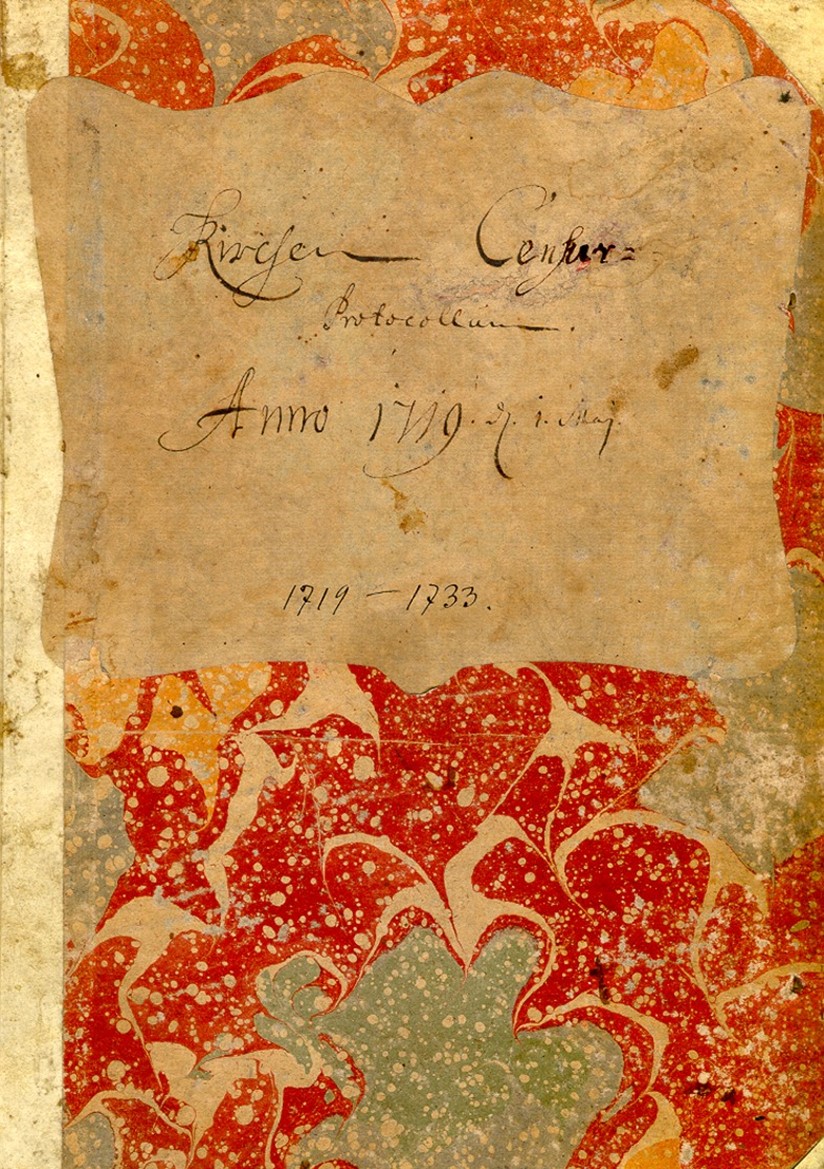 Kirchen Censur=
Protocollum.
Anno 1719. d. 1. Maj.
1719 — 1733.